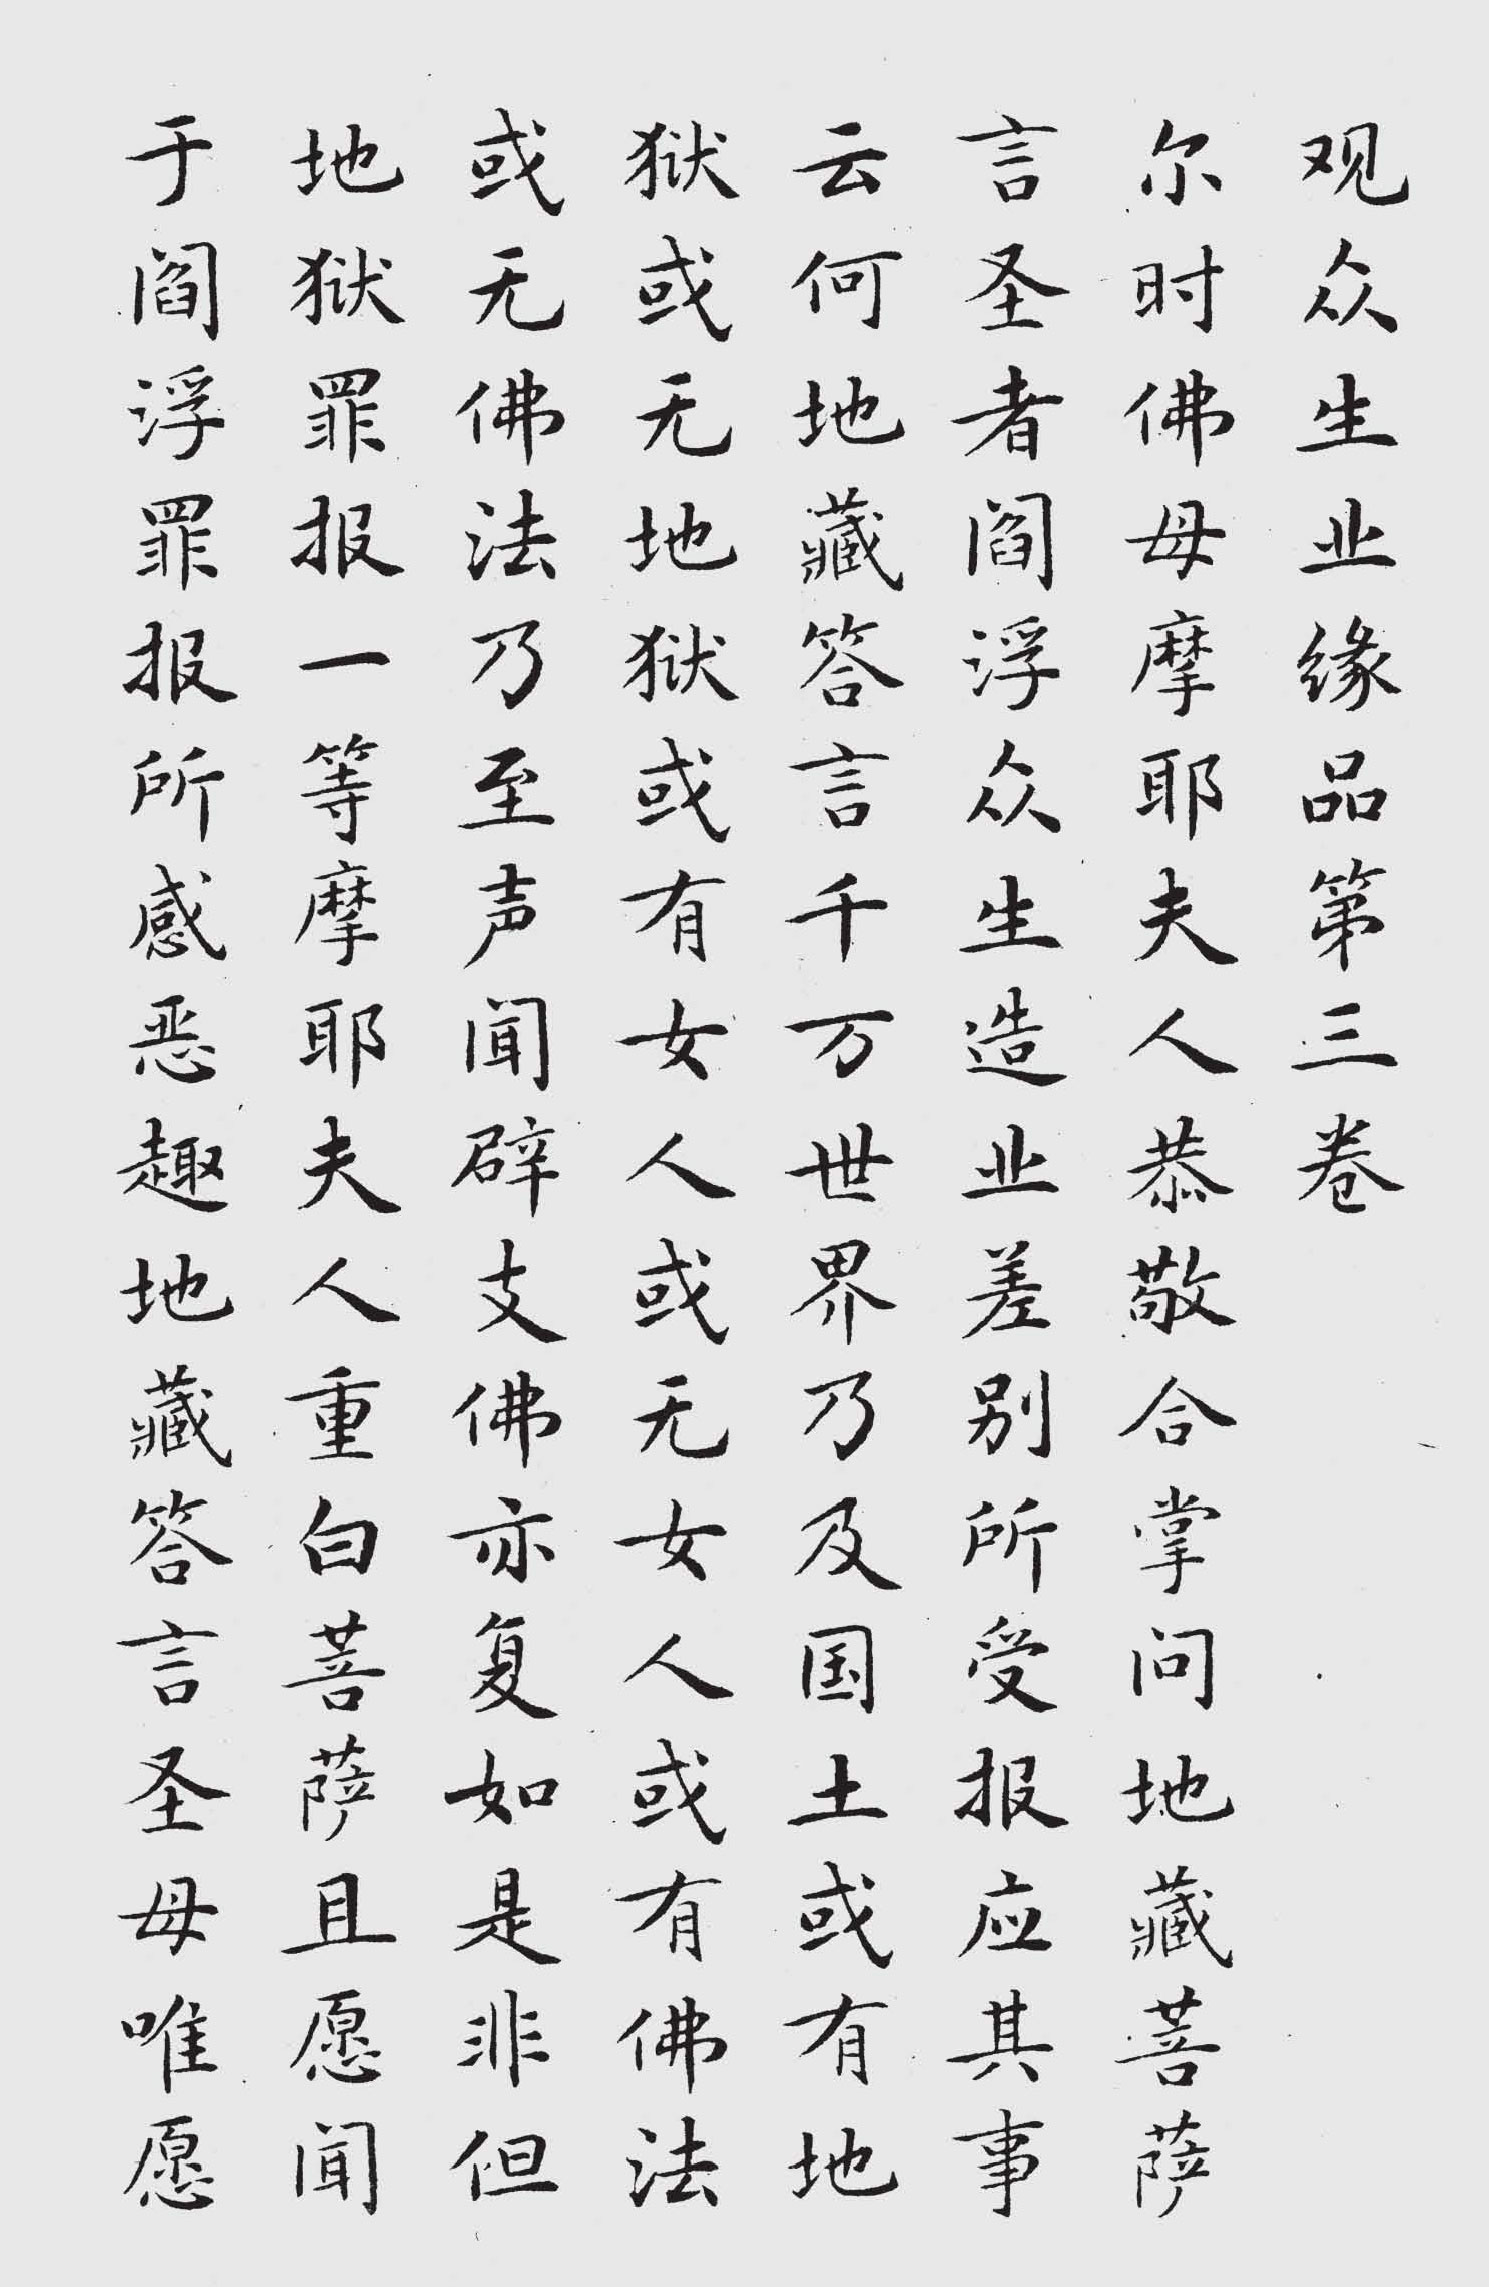 观众生业缘品第三卷
尔时佛母摩耶夫人恭敬合掌问地藏菩萨
言圣者阎浮众生造业差别所受报应其事
云何地藏答言千万世界乃及国土或有地
狱或无地狱或有女人或无女人或有佛法
或无佛法乃至声闻辟支佛亦复如是非但
地狱罪报一等摩耶夫人重白菩萨且愿闻
于阎浮罪报所感恶趣地藏答言圣母唯愿